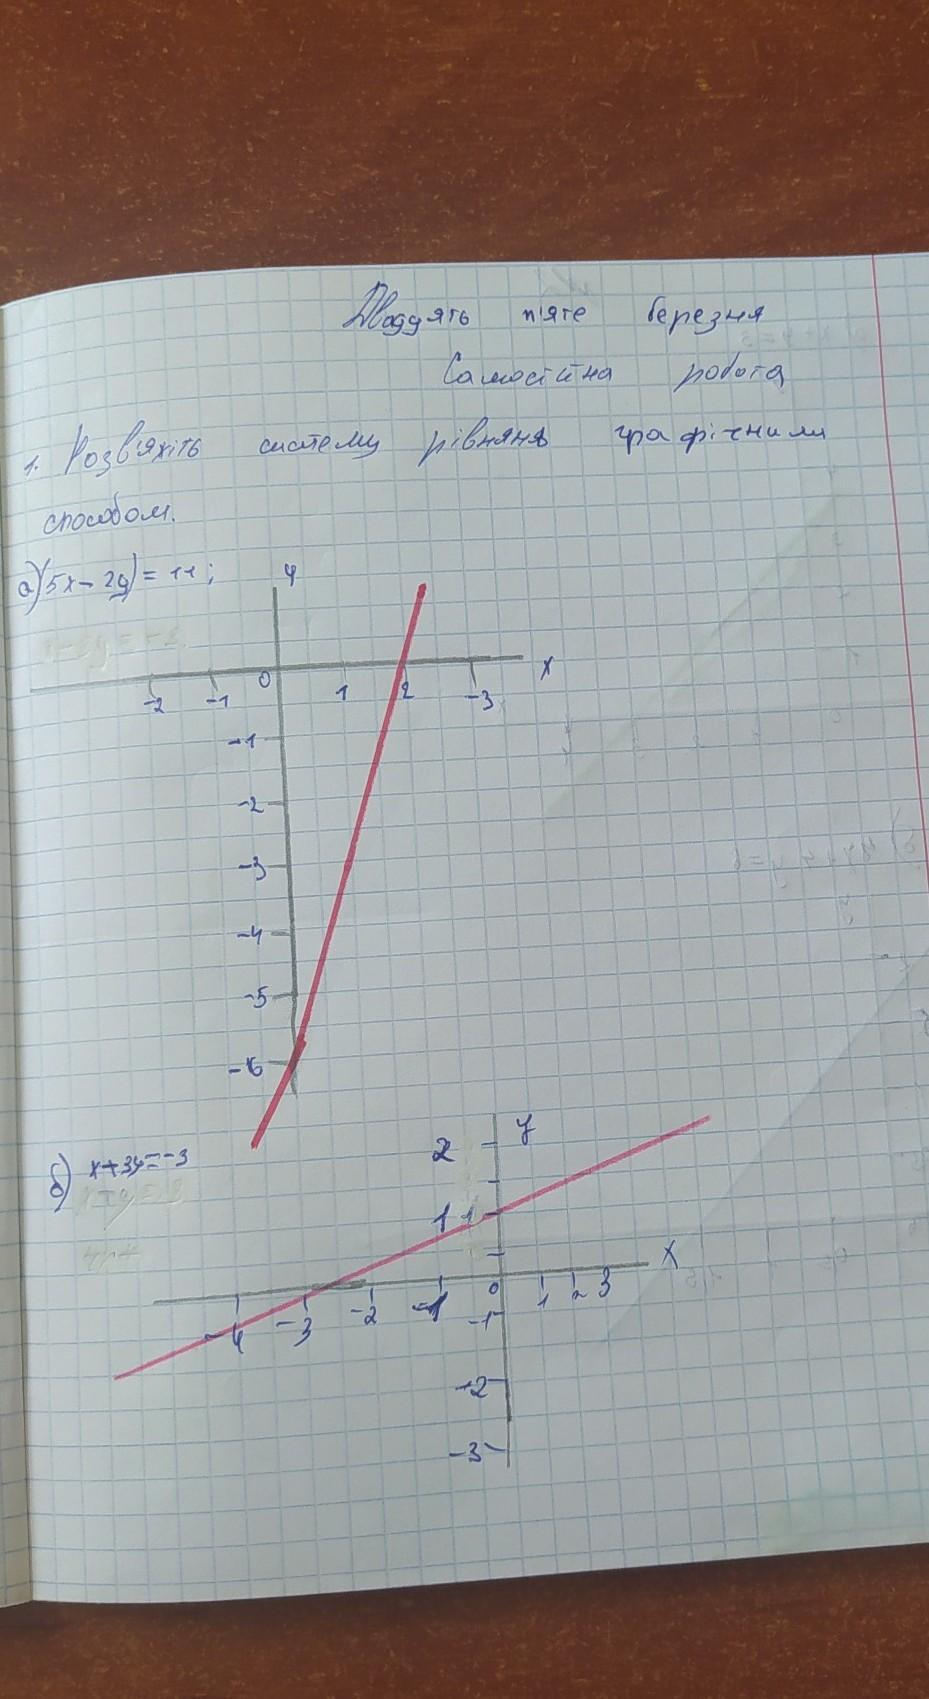 Двадцять п'яте березня
Самостійна робота
1. Розв'яжіть систему рівнянь графічним
способом.
а) (5x - 2y) = 11;
y
x
-2 -1 0 1 2 -3
-1
-2
-3
-4
-5
-6
б) x+3y=-3
y
2
1 1
x
-4 -3 -2 -1 0 1 2 3
-1
-2
-3